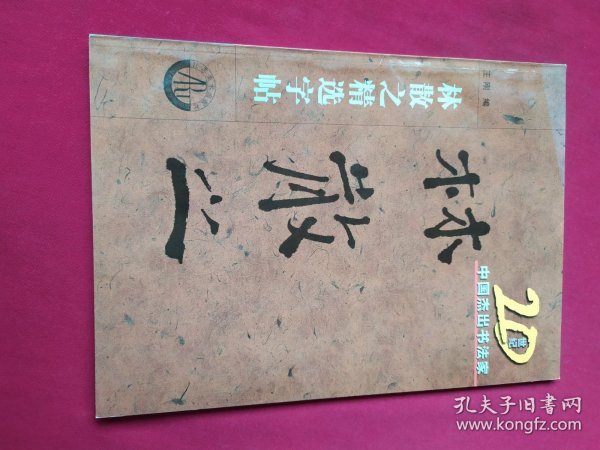 20世纪
中国杰出书法家
林散之
林散之精选字帖
编
孔夫子旧书网
www.kongfz.com